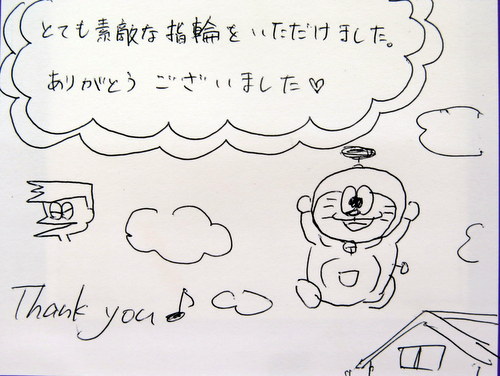 とても素敵な指輪をいただけました。
ありがとうございました♡
Thank you♪